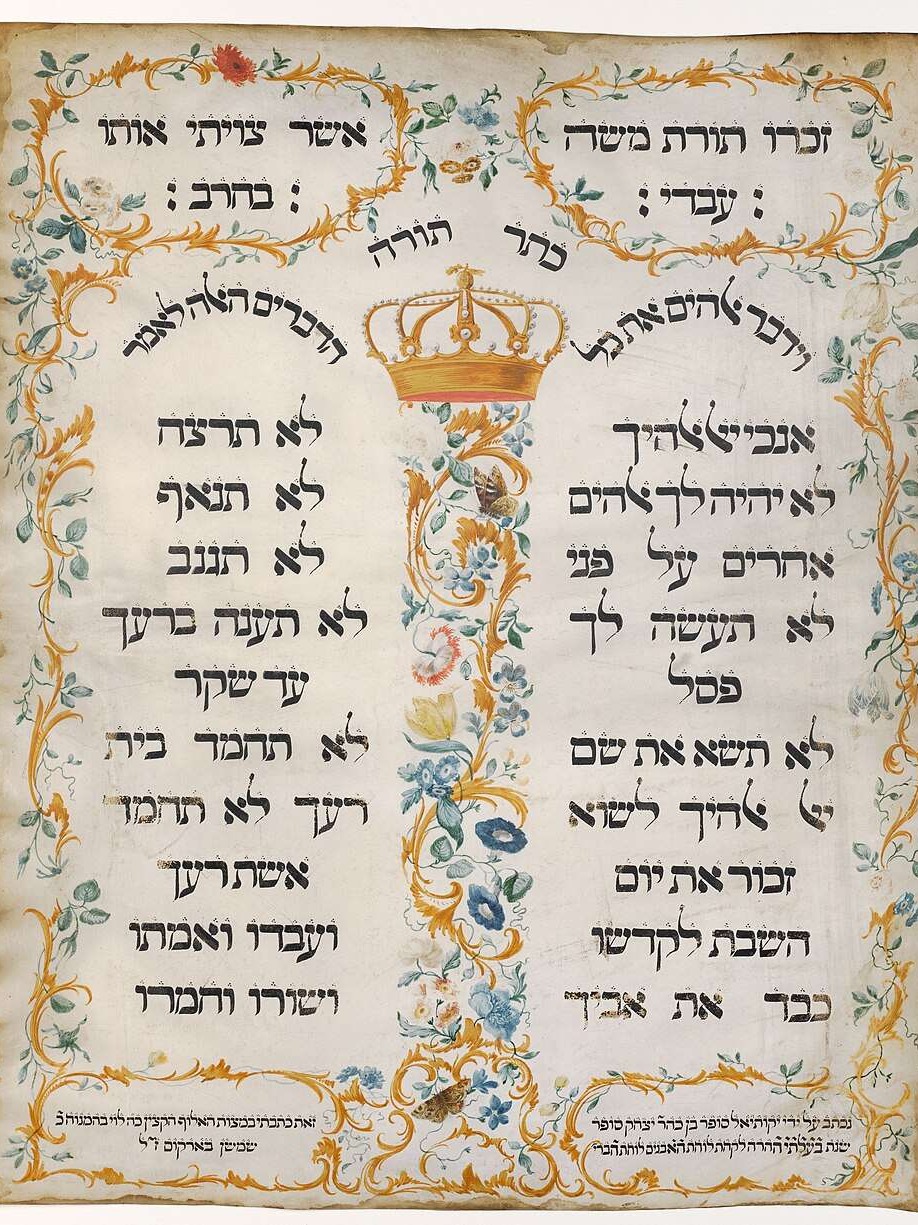 זכרו תורת משה
: עבדי :
אשר צויתי אותו
: בהרב :
כתר תורה
וידבר אלהים את כל
הדברים האלה לאמר
אנכי יי אלהיך
לא יהיה לך אלהים
אחרים על פני
לא תעשה לך
פסל
לא תשא את שם
יי אלהיך לשוא
זכור את יום
השבת לקדשו
כבד את אביך
לא תרצח
לא תנאף
לא תגנב
לא תענה ברעך
עד שקר
לא תחמד בית
רעך לא תחמד
אשת רעך
ועבדו ואמתו
ושורו וחמרו
נכתב על ידי יקותיאל סופר בן כהר יצחק סופר
שנת בעלתי ההרה לקחת לוחת האבנים לוחת הברי
זאת כתבתי במצות האלוף הקצין כה לוי
שמשן בארקום